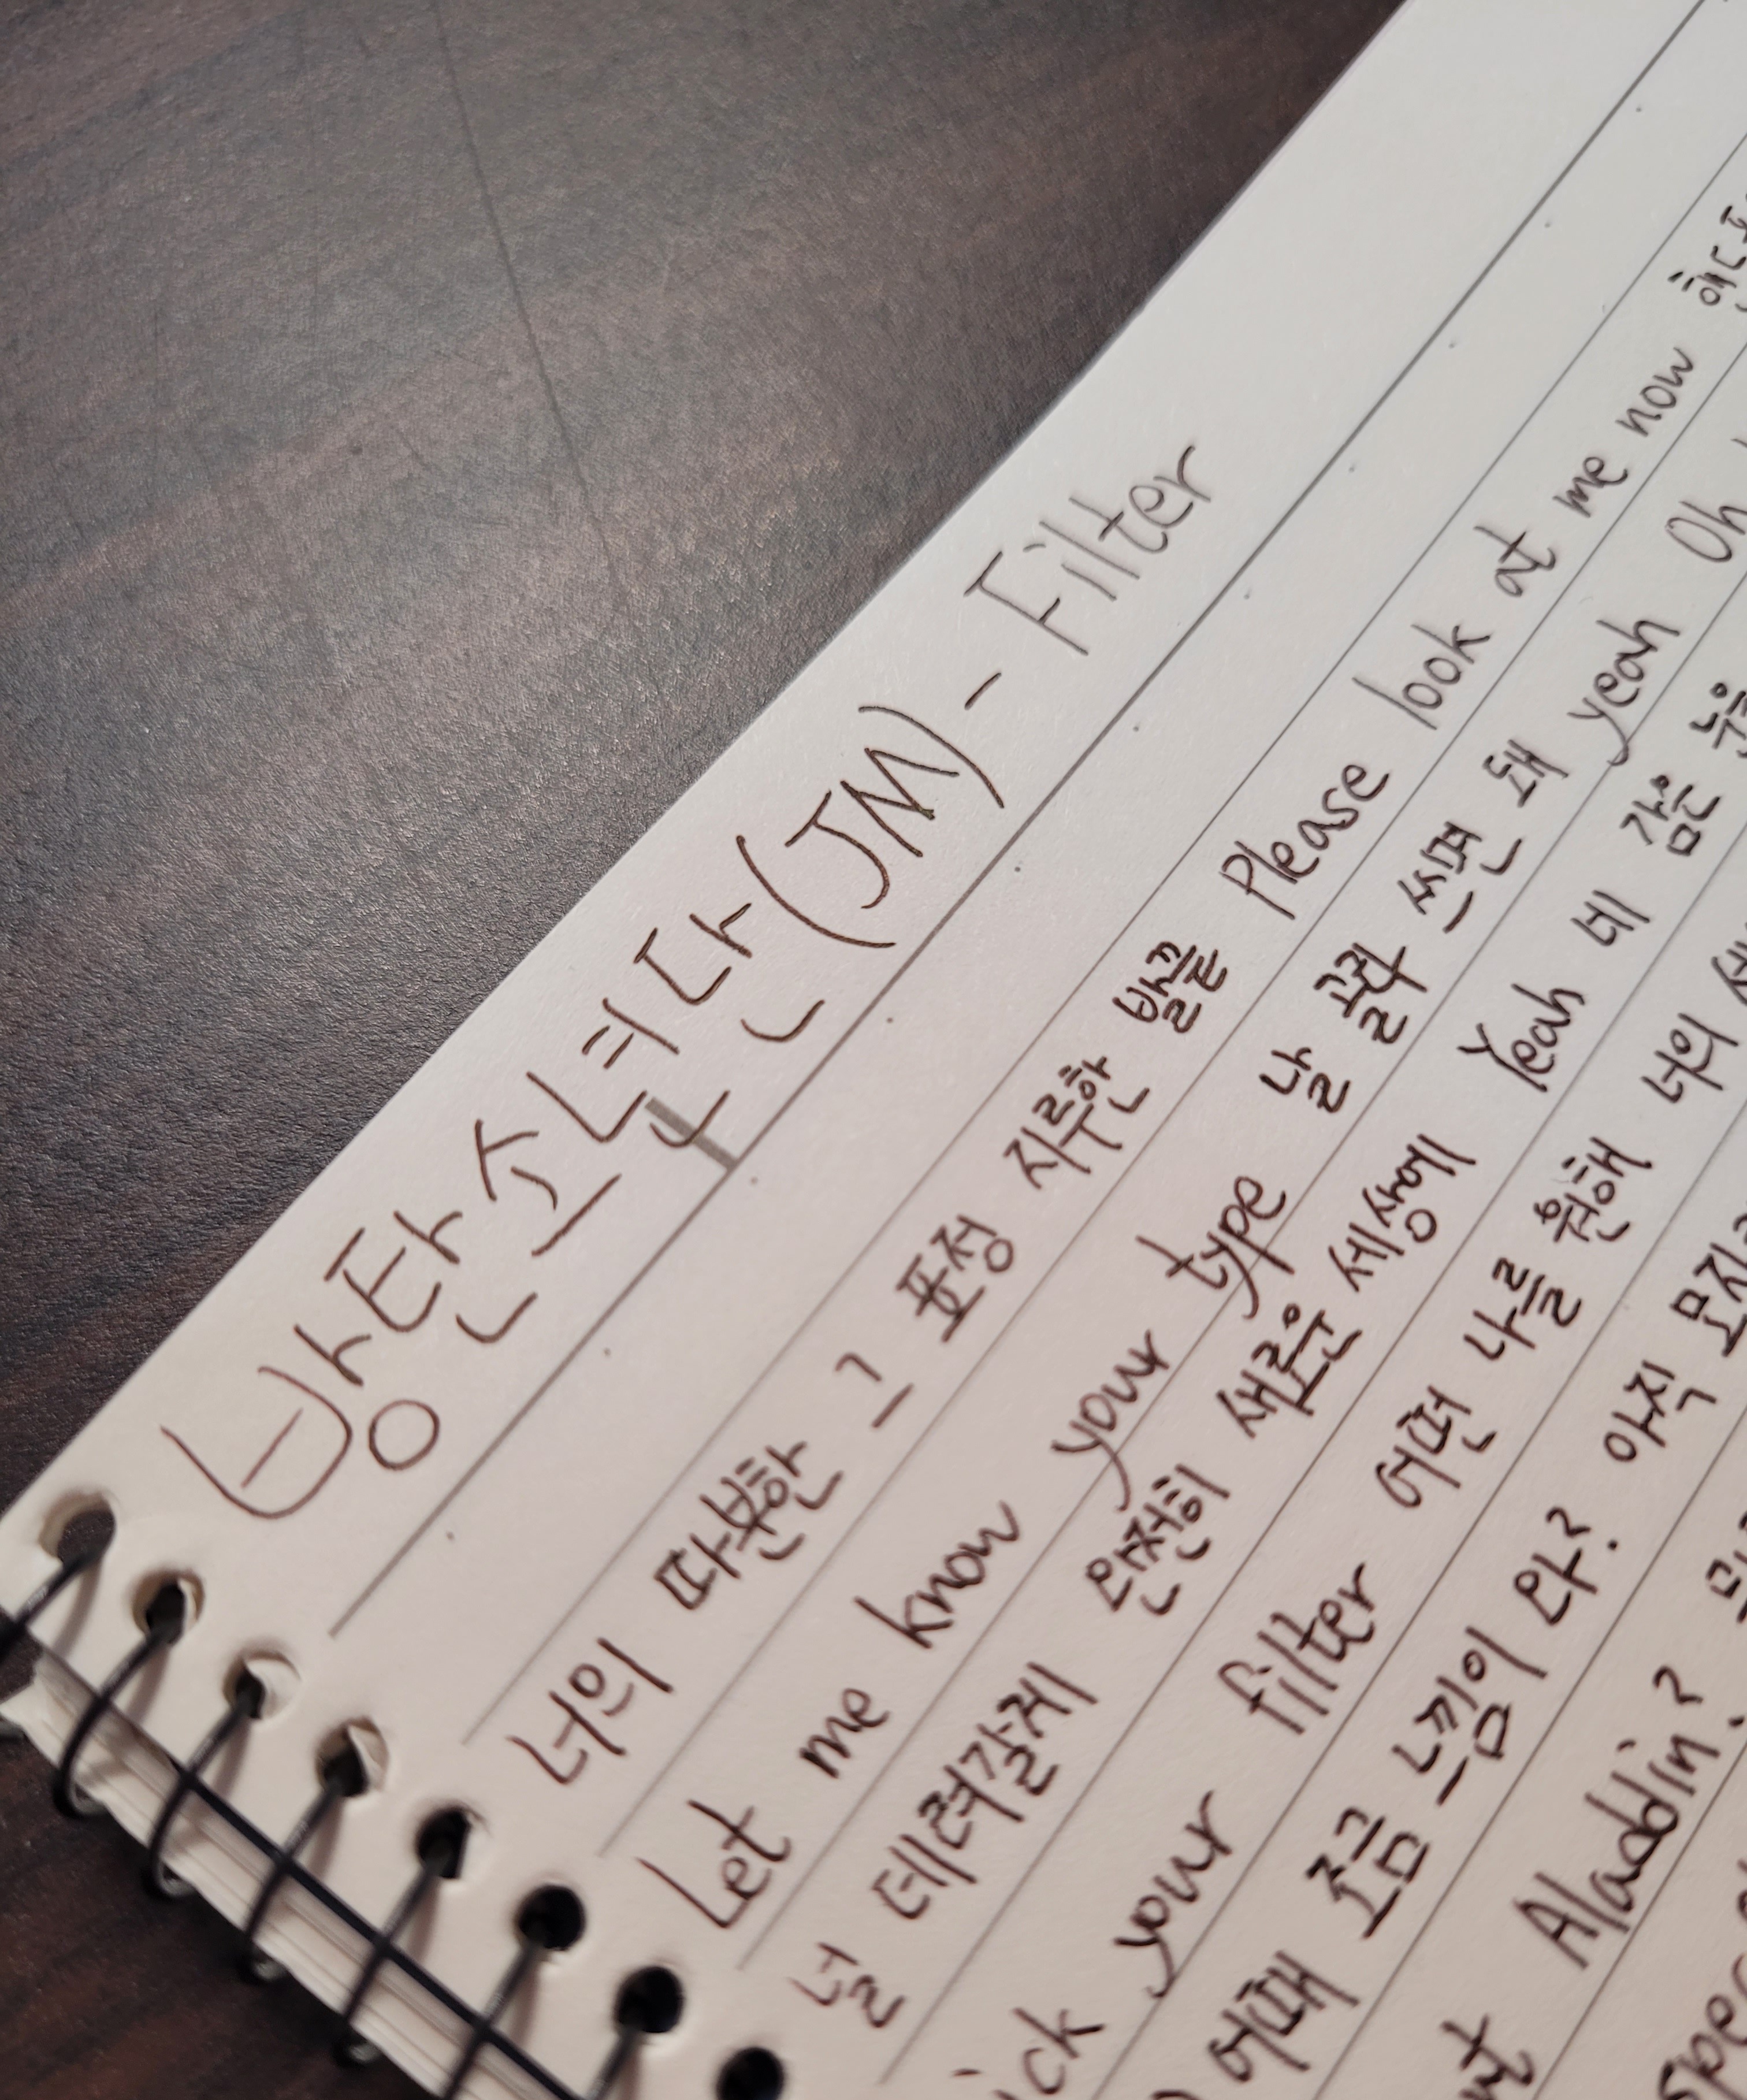 방탄소년단(JM) - Filter
너의 따분한 그 표정 지루한 발끝 Please look at me now
Let me know your type 날 골라 쓰면 돼 yeah Oh
널 데려갈게 완전히 새로운 세상에 Yeah 네 감은
your filter 어떤 나를 원해 너의
어때 조금 느낌이 와? 아직
Aladdin?